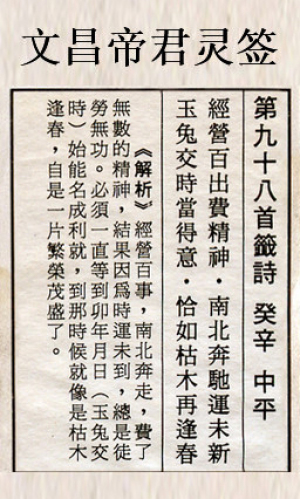 文昌帝君灵签
第九十八首籤詩 癸辛 中平
經營百出費精神·南北奔馳運未新
玉兔交時當得意·恰如枯木再逢春
《解析》經營百事，南北奔走，費了
無數的精神，結果因爲時運未到，總是徒
勞無功。必須一直等到卯年月日（玉兔交
時）始能名成利就，到那時候就像是枯木
逢春，自是一片繁榮茂盛了。